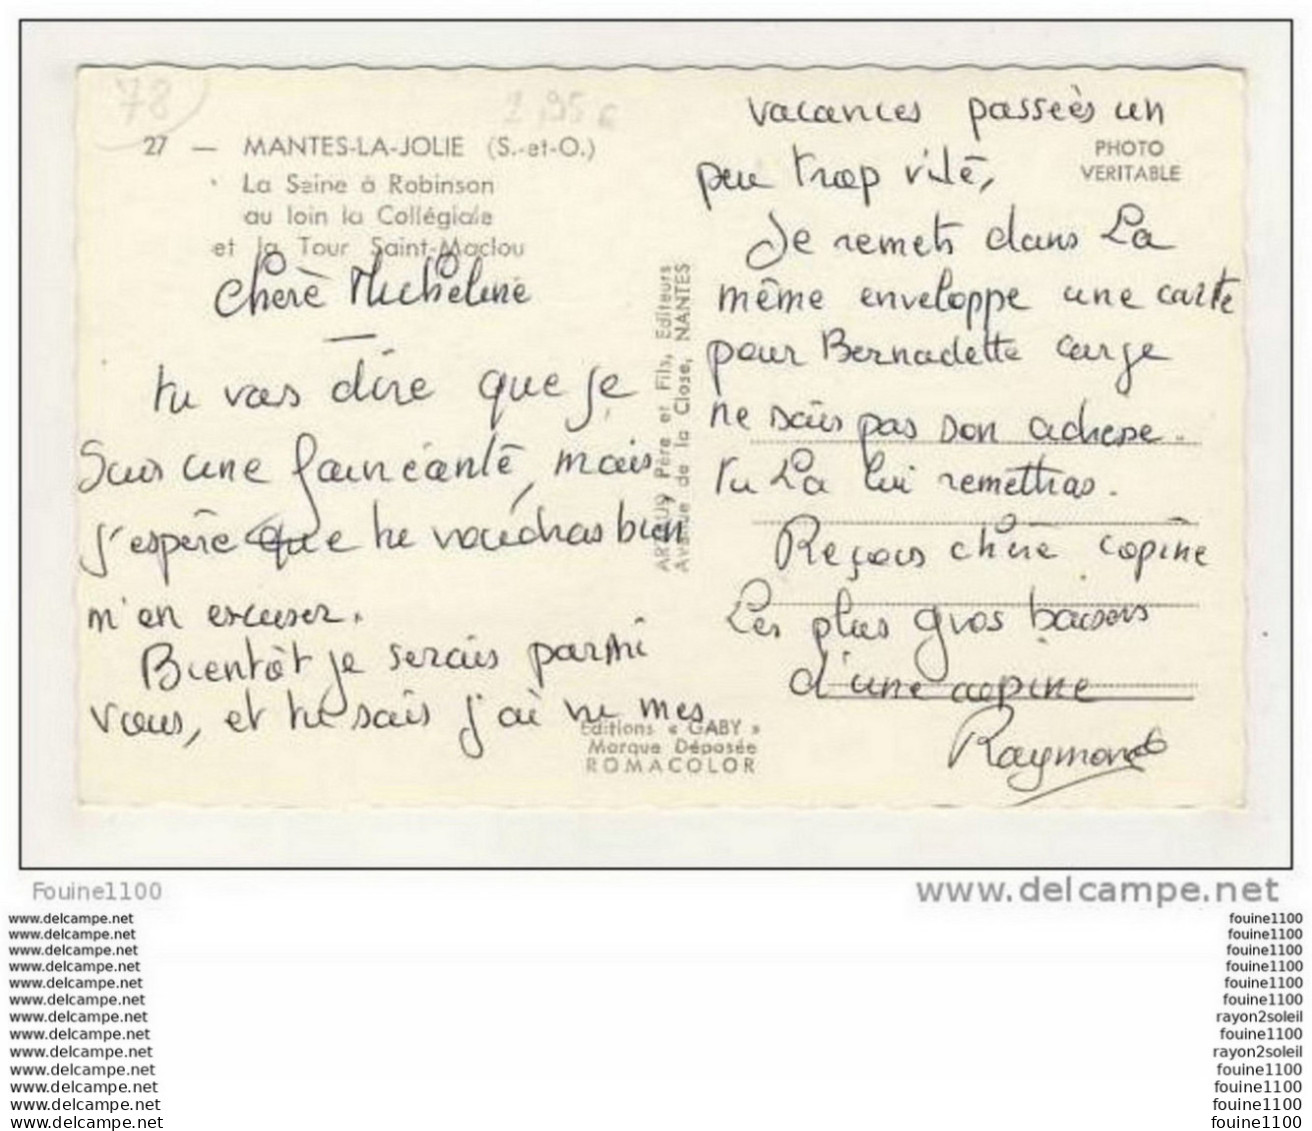 78
1,95 €
27 — MANTES-LA-JOLIE (S.-et-O.)
La Seine à Robinson
au loin la Collégiale
et la Tour Saint-Maclou
Chère Micheline
—
tu vas dire que je
suis une fainéante, mais
j'espère que tu voudras bien
m'en excuser.
Bientôt je serais parmi
vous, et tu sais j'ai vu mes
ARTAUD Père et Fils, Editeurs
Avenue de la Close, NANTES
Editions « GABY »
Marque Déposée
ROMACOLOR
PHOTO
VERITABLE
vacances passées un
peu trop vite,
Je remets dans la
même enveloppe une carte
pour Bernadette car je
ne sais pas son adresse.
Tu la lui remettras.
Reçois chère copine
Les plus gros baisers
d'une copine
Raymonde
Fouine1100
www.delcampe.net
www.delcampe.net
www.delcampe.net
www.delcampe.net
www.delcampe.net
www.delcampe.net
www.delcampe.net
www.delcampe.net
www.delcampe.net
www.delcampe.net
www.delcampe.net
www.delcampe.net
www.delcampe.net
www.delcampe.net
fouine1100
fouine1100
fouine1100
fouine1100
fouine1100
fouine1100
rayon2soleil
fouine1100
rayon2soleil
fouine1100
fouine1100
fouine1100
fouine1100